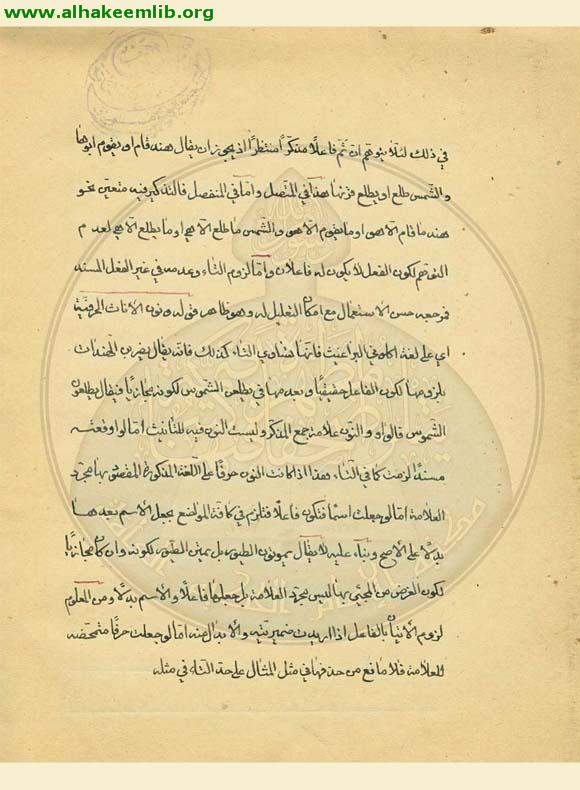 www.alhakeemlib.org
في ذلك لئلا يتوهم ان ثم فاعلًا مذكرًا منتظرًا اذ يجوز ان يقال هند قام او يقوم ابوها
والشمس طلع او يطلع قرنها هذا في المتصل واما في المنفصل فالتذكير فيه متعين نحو
هند ما قام الا هي او ما يقوم الا هي والشمس ما طلع الا هي او ما يطلع الا هي لعدم
التوهم لكون الفعل لا يكون له فاعلان واما لزوم التاء وعدمه في غير الفعل المسند
فمرجعه حسن الاستعمال مع امكان التعليل له وهو ظاهر قوله ونون الاناث الحرفية
اي على لغة اكلوني البراغيث فانها تساوي التاء كذلك فانه يقال يضربن الهندات
بلزومها لكون الفاعل حقيقيًا وبعدمها في يطلعن الشموس لكونه مجازيًا فيقال يطلعون
الشموس فالواو والنون علامة جمع المذكر وليست النون فيه للتانيث اما لو وقعت
مسندًا لزمت كما في التاء وهذا اذا كانت النون حرفًا على اللغة المذكورة المقصود بها مجرد
العلامة اما لو جعلت اسمًا فتكون فاعلًا فتلزم في كافة المواضع بجعل الاسم بعدها
بدلًا على الاصح وبناء عليه لا يقال يموتون الطيور بل يمتن الطيور لكونه وان كان مجازيًا
لكون الغرض من المجيئ بها ليس مجرد العلامة بل جعلها فاعلًا والاسم بدلًا ومن المعلوم
لزوم الاتيان بالفاعل اذا اريدت ضميريته والابدال منه اما لو جعلت حرفًا متمحضة
للعلامة فلا مانع من حذفها في مثل المثال على حد التاء في مثله